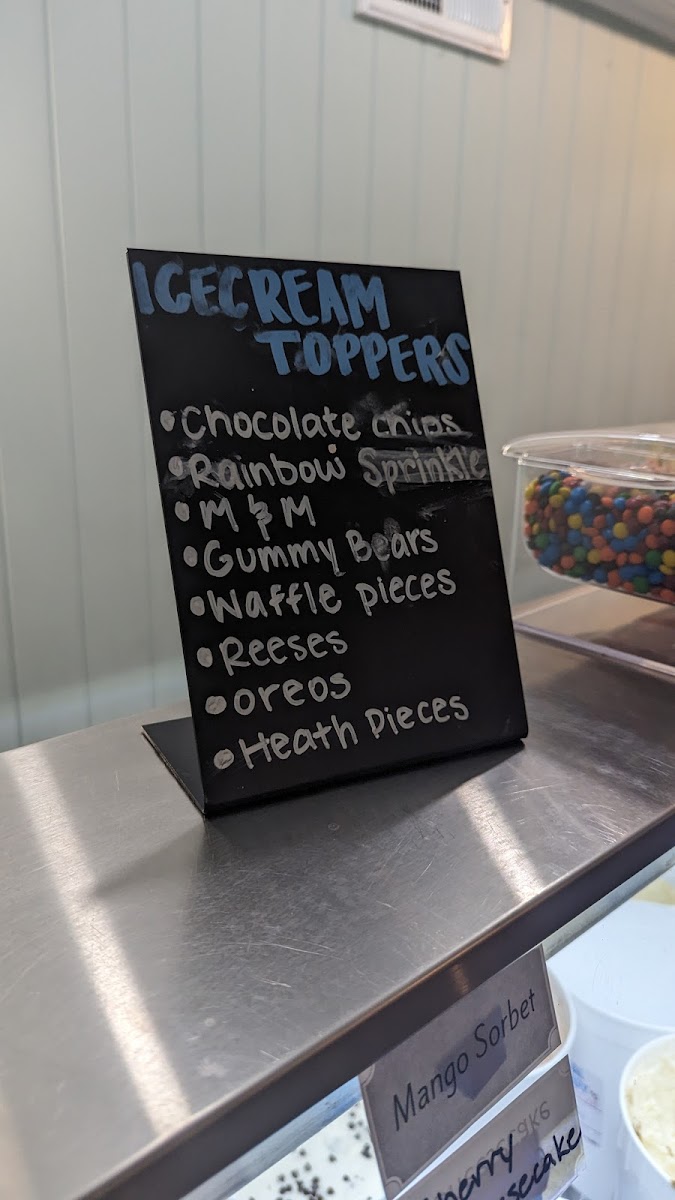 ICECREAM
TOPPERS
•Chocolate chips
•Rainbow Sprinkle
•M & M
•Gummy Bears
•Waffle pieces
•Reeses
•oreos
•Heath pieces
Mango Sorbet